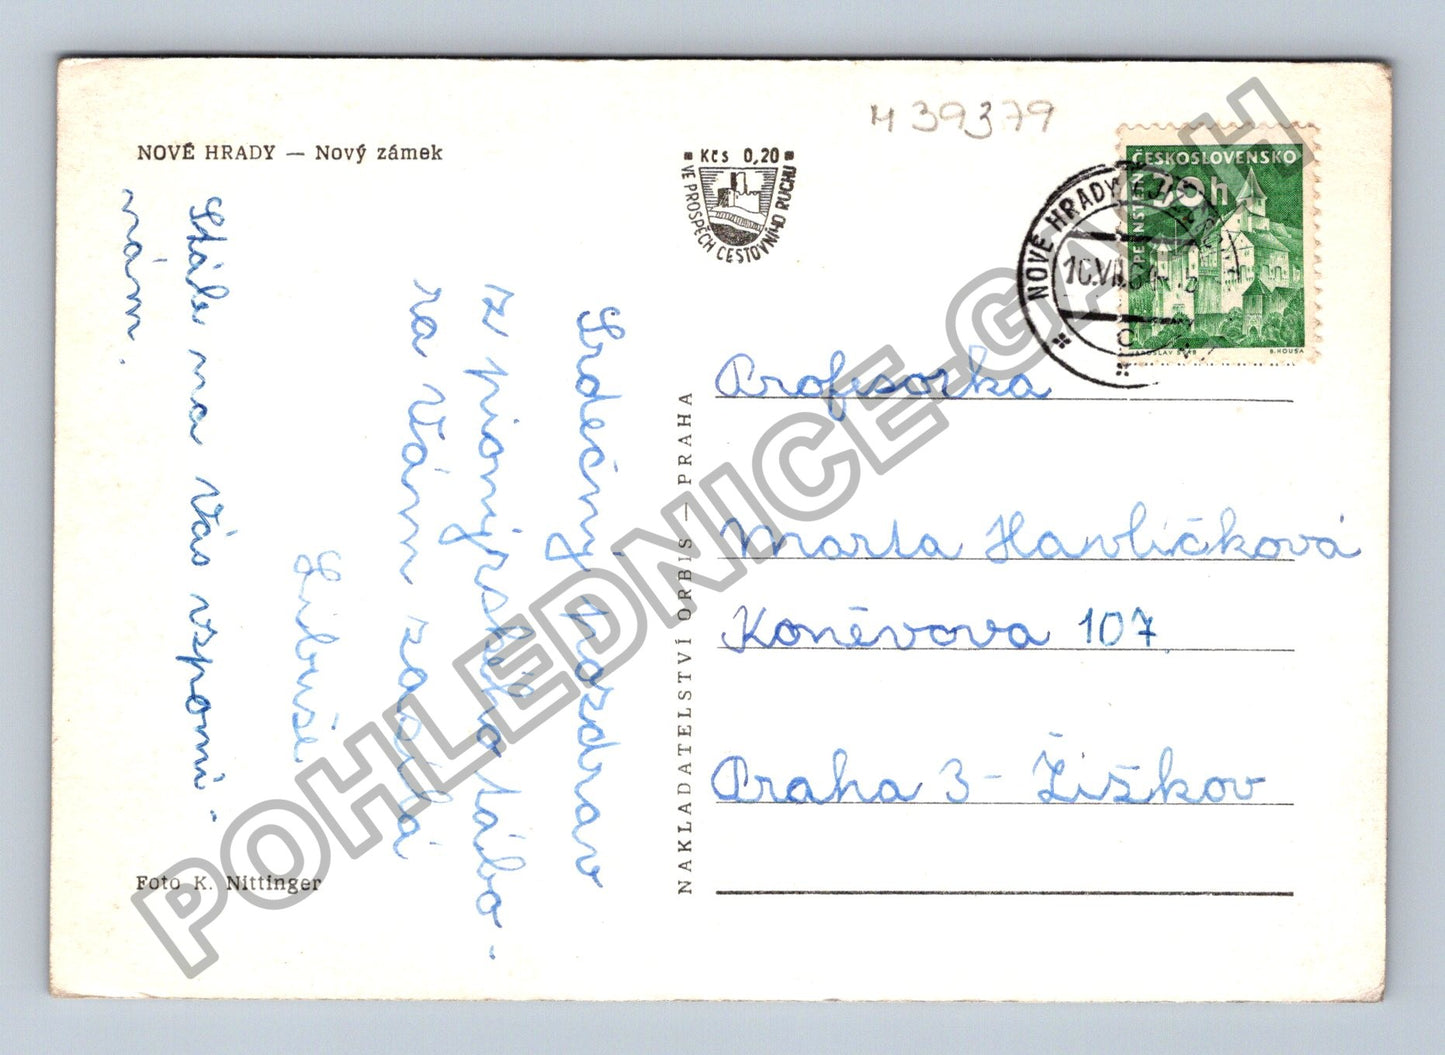 NOVÉ HRADY — Nový zámek
M 39379
Kčs 0,20
VE PROSPĚCH CESTOVNÍHO RUCHU
ČESKOSLOVENSKO
30h
PERNŠTEJN
JAROSLAV ŠVÁB
B. HOUSA
NOVÉ HRADY
Srdečný pozdrav
z pionýrského tábo-
ra Vám zasílá
Libuše
Stále na Vás vzpomí-
nám.
NAKLADATELSTVÍ ORBIS — PRAHA
Profesorka
Marta Havlíčková
Koněvova 107
Praha 3 - Žižkov
Foto K. Nittinger
POHLEDNICE-GASH